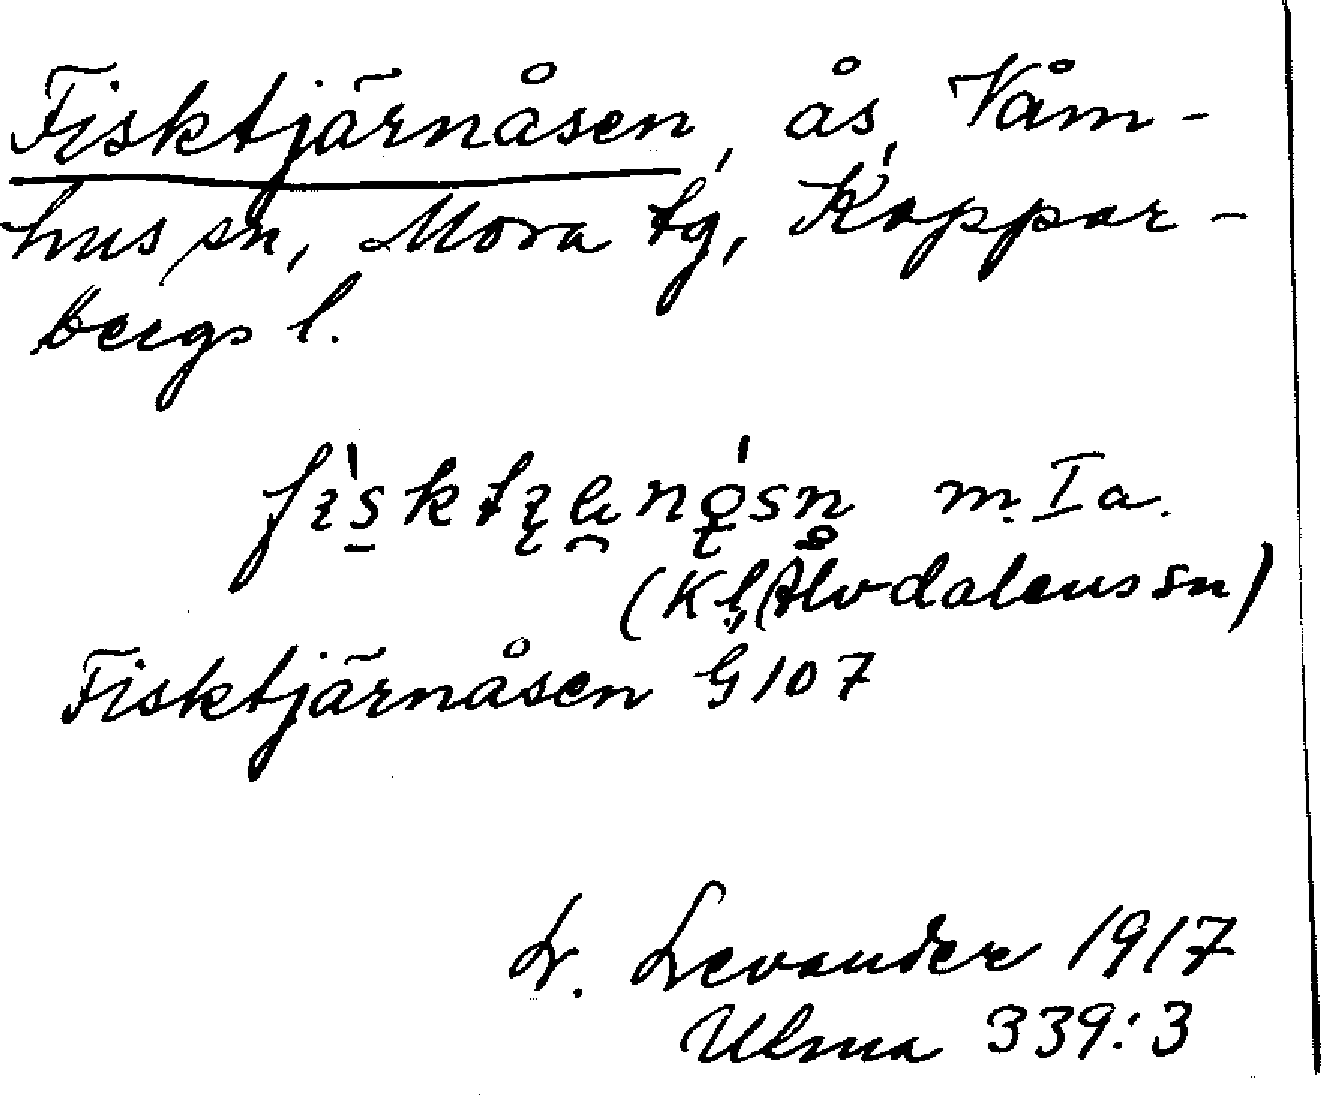 Fisktjärnåsen, ås, Våm-
hus sn, Mora tg, Koppar-
bergs l.
m. I a.
Älvdalens sn)
Fisktjärnåsen G 107
L. Levander 1917
Ulma 339:3